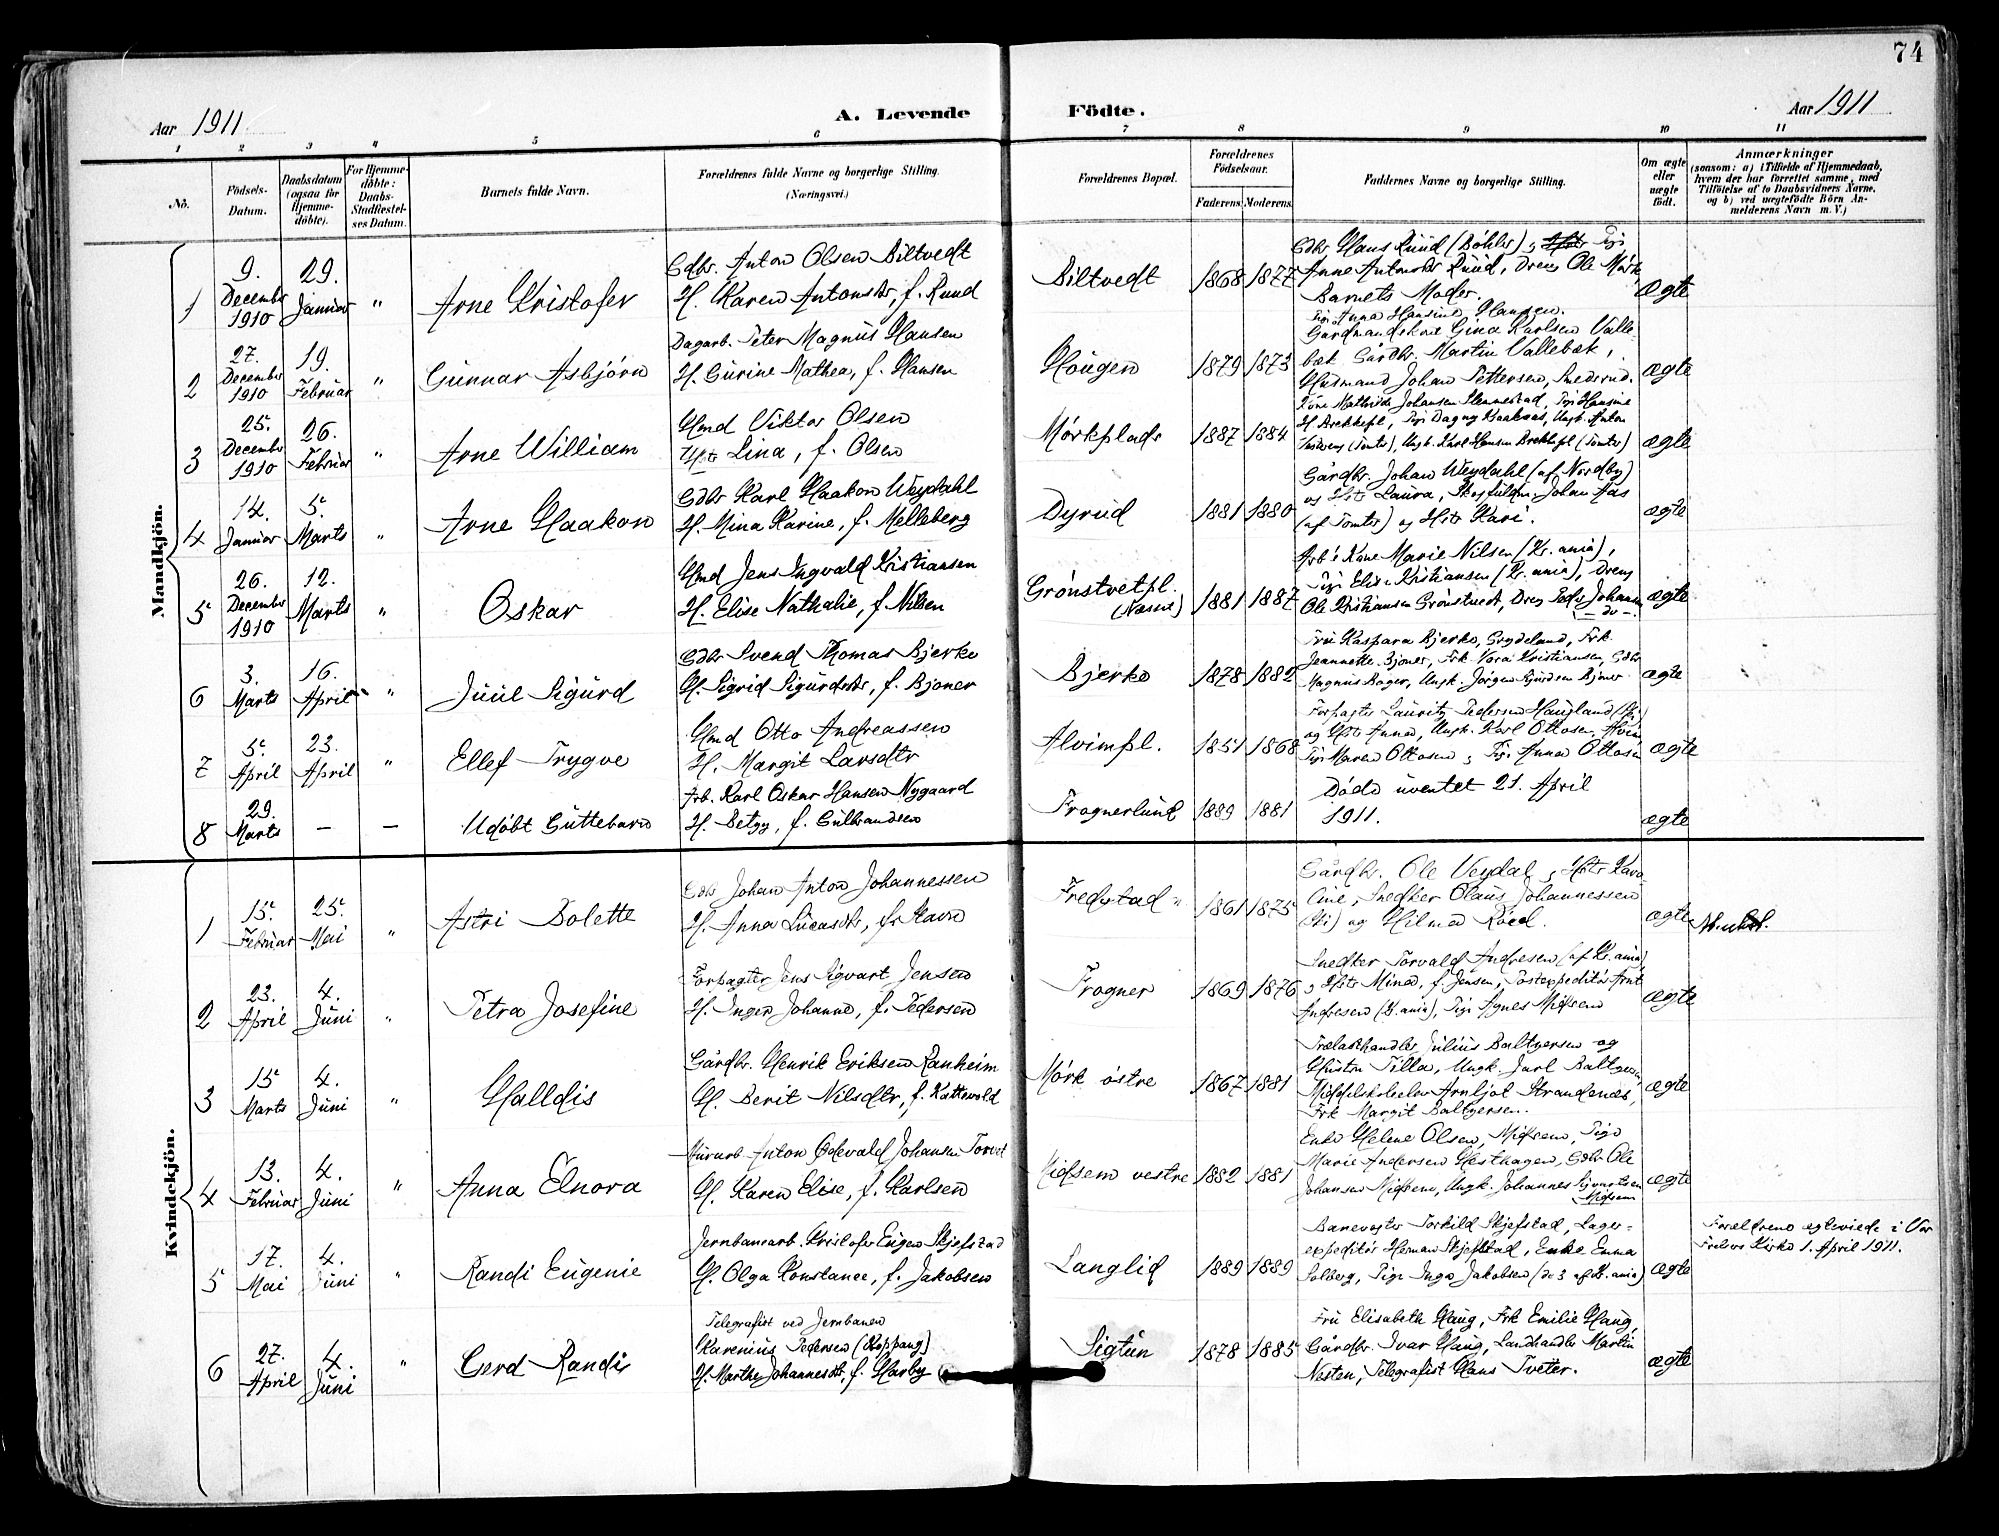 74
Aar 1911
A. Levende Födte.
Aar 1911
1 2 3 4 5 6 7 8 9 10 11
No.
Födsels-Datum.
Daabsdatum (ogsaa for Hjemme-döbte).
For Hjemme-döbte: Daabs-Stadfæstel-ses Datum.
Barnets fulde Navn.
Forældrenes fulde Navne og borgerlige Stilling. (Næringsvei.)
Forældrenes Bopæl.
Forældrenes Födselsaar.
Faderens. Moderens.
Faddernes Navne og borgerlige Stilling.
Om ægte eller uægte födt.
Anmærkninger
(saasom: a) i Tilfælde af Hjemmedaab,
hvem der har forrettet samme, med
Tilföielse af to Daabsvidners Navne,
og b) ved uægtefödte Börn An-
melderens Navn m. V.)
Mandkjön.
1 9. December 1910 29. Januar " Arne Kristofer
Gdbr. Anton Olsen Biltvedt
H. Karen Antonsdtr, f. Ruud
Biltvedt 1868 1877
Gdbr Hans Ruud (Bøhler), Pige
Anne Antonsdtr Ruud, Dreng Ole Mørk,
Barnets Moder.
ægte
2 27. December 1910 19. Februar " Gunnar Asbjørn
Dagarb. Peter Magnus Hansen
H. Gurine Mathea, f. Hansen
Hougen 1879 1873
Pige Anna Hansine Hansen.
Gårdmandskone Gina Karlsen Valle-
bæk, Gårdbr. Martin Vallebæk,
Husmand Johan Pettersen,
ægte
3 25. December 1910 26. Februar " Arne William
Hmd Viktor Olsen
Hstr Lina, f. Olsen
Mørkplads 1887 1884
Kone Mathilde Johansen Slemmestad, Pige Hansine
ægte
4 14. Januar 5. Marts " Arne Haakon
Gdbr Karl Haakon Weydahl
H. Mina Karine, f. Melleberg
Dyrud 1881 1880
Gårdbr. Johan Weydahl (af Nordby)
og Hstr Laura, Skogfuldm. Johan Aas
(af Tomter) og Hstr Kari.
ægte
5 26. December 1910 12. Marts " Oskar
Hmd Jens Ingvald Kristiansen
H. Elise Nathalie, f. Nilsen
Grønstvetpl. 1881 1887
Arb's Kone Marie Nilsen (Kr.ania),
Pige Elise Kristiansen (Kr.ania), Dreng
Ole Kristiansen Grønstvedt, Dreng Peder Johansen
— do —
ægte
6 3. Marts 16. April " Juul Sigurd
Gdbr Svend Thomas Bjerke
H. Sigrid Sigurdsdtr, f. Bjoner
Bjerke 1878 1882
Fru Kaspara Bjerke, Grydeland, Frk.
Jeannette Bjoner, Frk. Nora Kristiansen, Gdbr
Magnus Bøger, Ungk. Jørgen Sjurdsen Bjoner.
ægte
7 5. April 23. April " Ellef Trygve
Hmd Otto Andreassen
H. Margit Larsdtr
Alvimpl. 1851 1868
Forpagter Lauritz Pedersen Haugland
og Hstr Anna, Ungk. Karl Ottosen, Alvim
Pige Maren Ottosen, Pige Anna Ottosen
ægte
8 29. Marts — — Udøbt Guttebarn
Arb. Karl Oskar Hansen Nygaard
H. Betzy, f. Gulbrandsen
Frognerlund 1889 1881
Døde uventet 21. April
1911.
ægte
Kvindekjön.
1 15. Februar 25. Mai " Astri Bolette
Gdbr Johan Anton Johannessen
H. Anna Lucasdtr, f. Ravn
Fredstad 1861 1875
Gårdbr. Ole Veydal, Hstr Karo-
line, Snedker Olaus Johannessen
(Ski) og Hilma Røed.
ægte
2 23. April 4. Juni " Petra Josefine
Forpagter Jens Sigvart Jensen
H. Inger Johanne, f. Pedersen
Frogner 1869 1876
Snedker Torvald Andresen (af Kr.ania)
, Hstr Mina, f. Jensen, Postexpeditør Arnt
Andresen (Kr.ania), Pige Agnes Midsem
ægte
3 15. Marts 4. Juni " Halldis
Gårdbr. Henrik Eriksen Ranheim
H. Berit Nilsdtr, f. Kattevold
Mørk østre 1867 1881
Trælasthandler Julius Baltzersen og
Hustru Tilla, Ungk. Jarl Baltzersen,
Middelskoleelev Arnljot Strandenæs,
Frk Margit Baltzersen.
ægte
4 13. Februar 4. Juni " Anna Elnora
Murarb Anton Edevald Johansen Torvet
H. Karen Elise, f. Karlsen
Midsem vestre 1882 1881
Enke Helene Olsen, Midsem, Pige
Marie Andersen Hesthagen, Gdbr Ole
Johansen Midsem, Ungk. Johannes Sigvartsen
Midsem
ægte
5 17. Mai 4. Juni " Randi Eugenie
Jernbanearb. Kristofer Eugen Skjefstad
H. Olga Konstance, f. Jakobsen
Langlid 1889 1889
Banevogter Torkild Skjefstad, Lager-
expeditør Herman Skjefstad, Enke Emma
Solberg, Pige Inga Jakobsen (de 3 af Kr.ania)
ægte
Forældrene egteviede i Vor
Frelsers Kirke 1. April 1911.
6 27. April 4. Juni " Gerd Randi
Telegrafist ved Jernbanen
Karenius Pedersen (Koppang)
H. Marthe Johannesdtr, f. Harby
Sigtun 1878 1885
Fru Elisabeth Haug, Frk Emilie Haug,
Gårdbr. Ivar Haug, Landhandler Martin
Nesten, Telegrafist Hans Tveter.
ægte